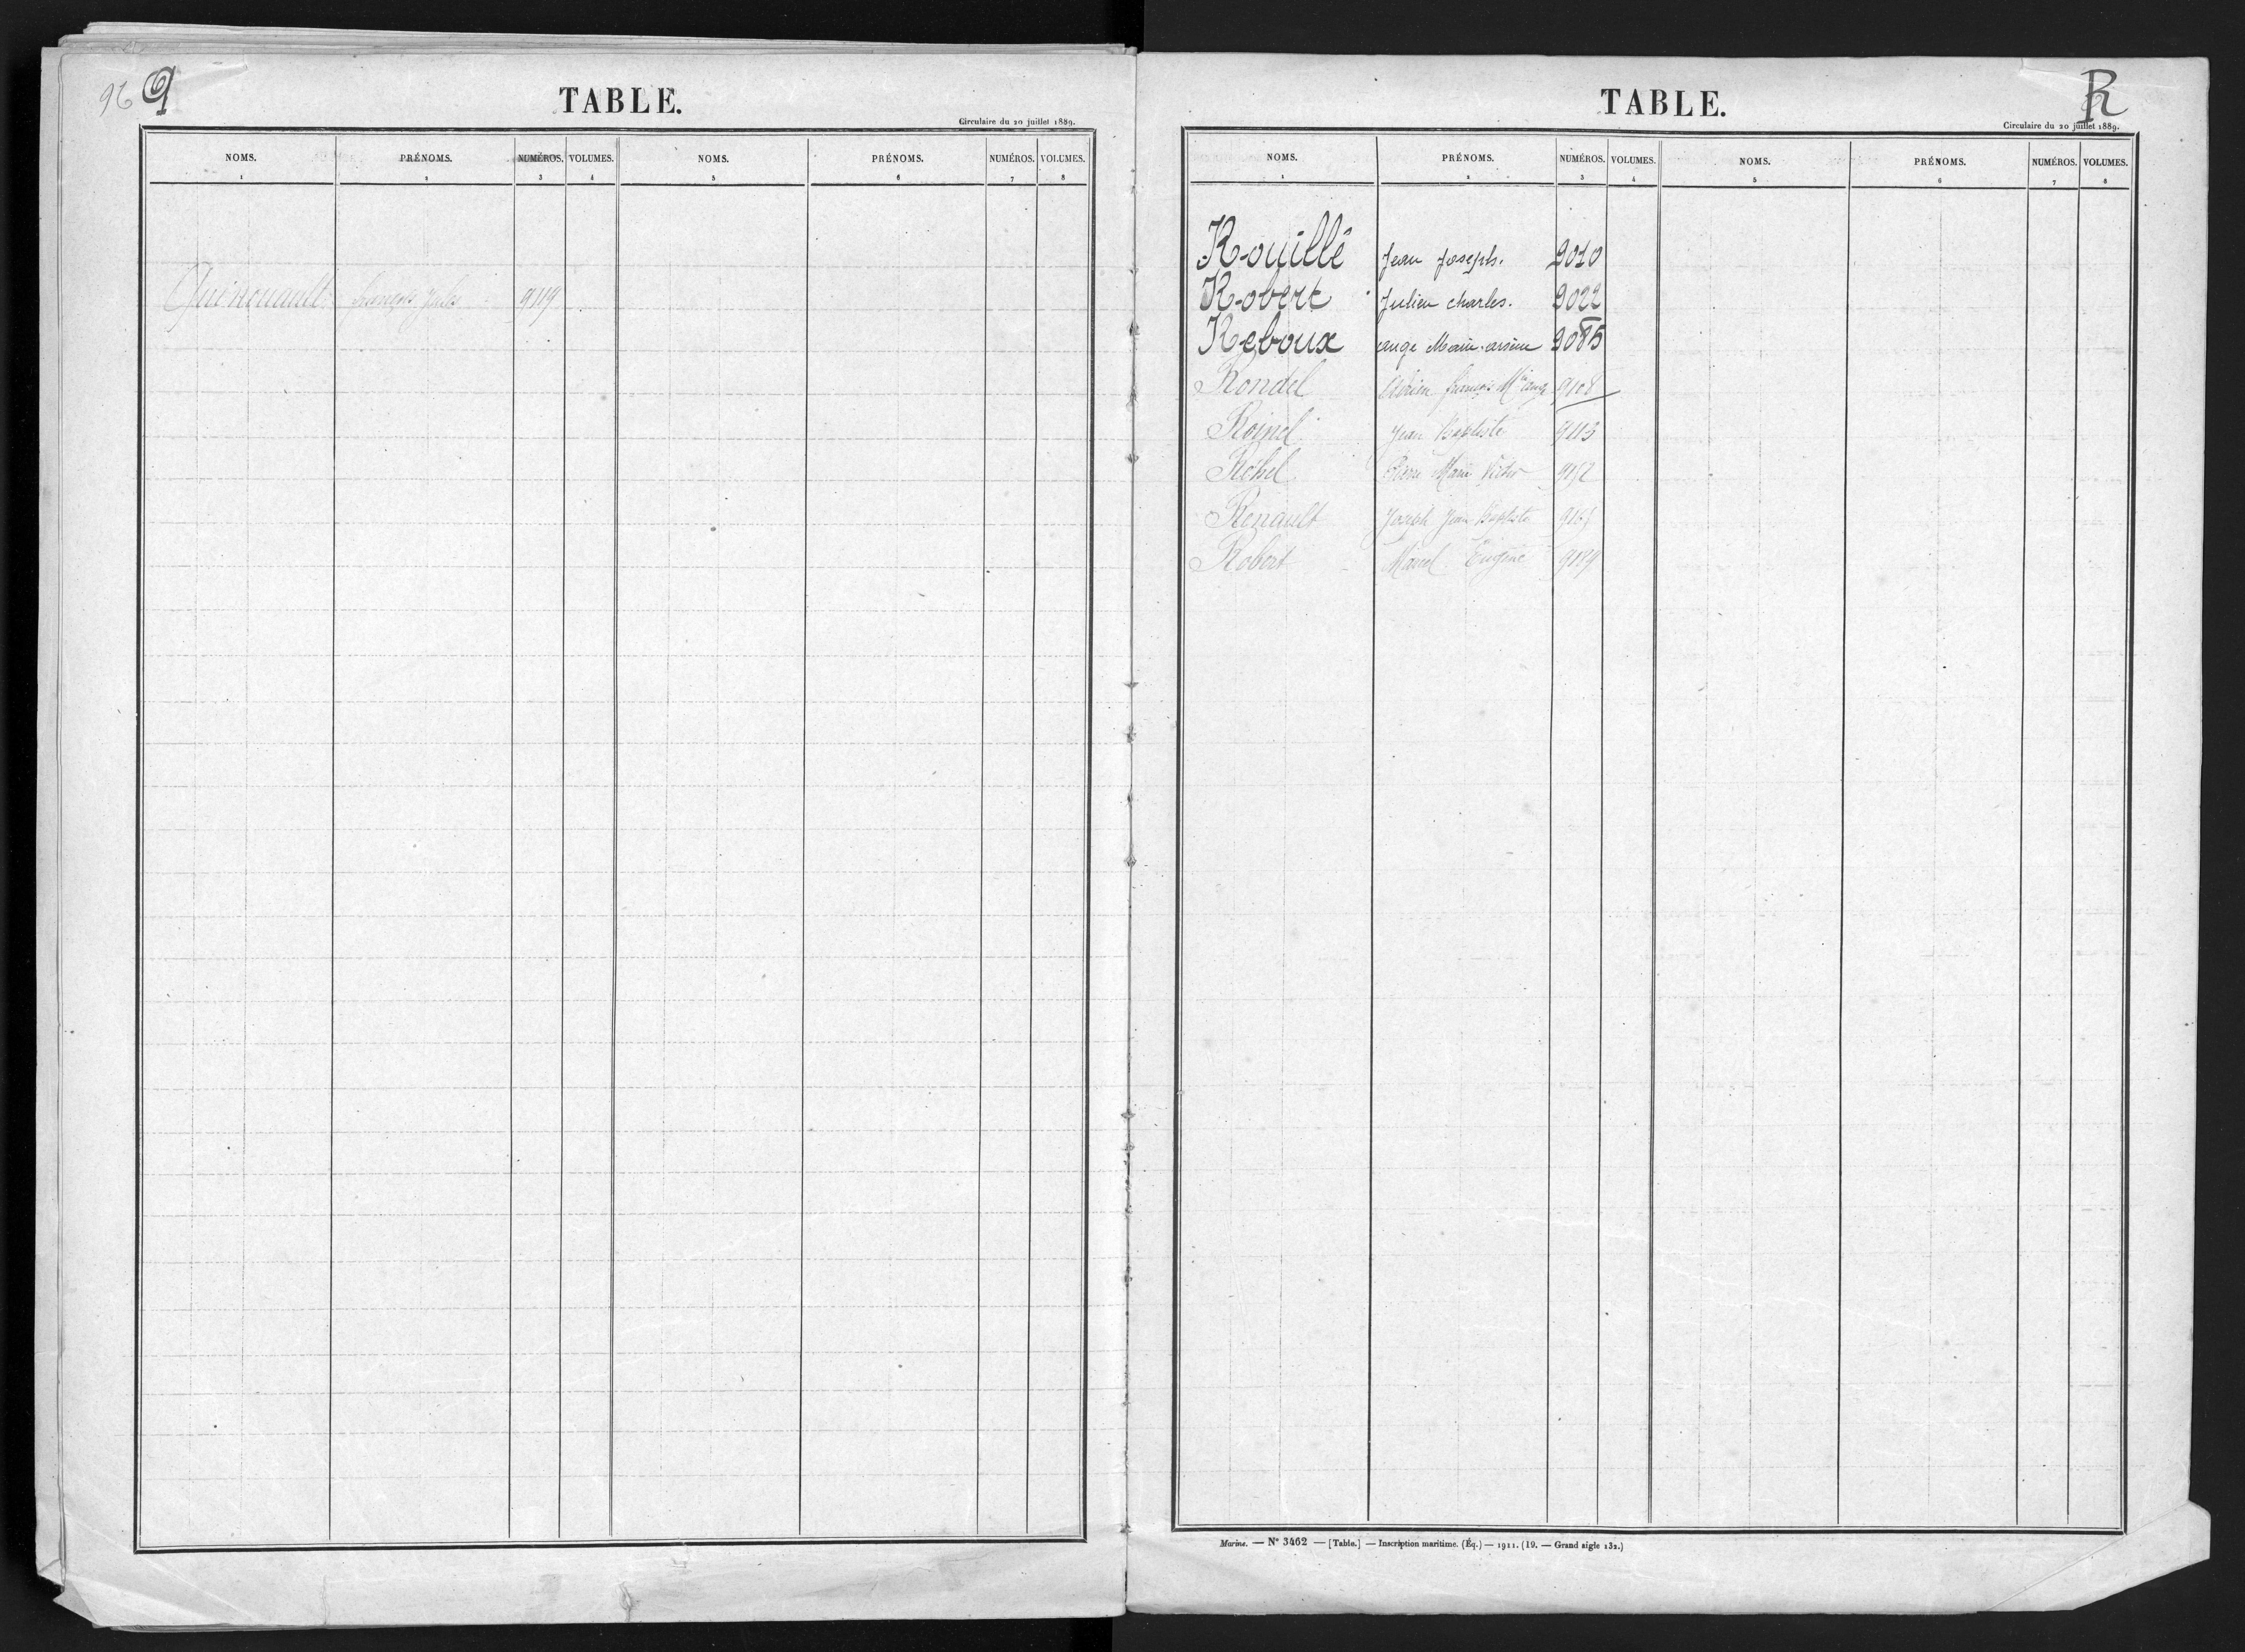 96 Q
TABLE.
Circulaire du 20 juillet 1889.
NOMS. PRÉNOMS. NUMÉROS. VOLUMES. NOMS. PRÉNOMS. NUMÉROS. VOLUMES.
1 2 3 4 5 6 7 8
Quinouault François Jules 9119
R
TABLE.
Circulaire du 20 juillet 1889.
NOMS. PRÉNOMS. NUMÉROS. VOLUMES. NOMS. PRÉNOMS. NUMÉROS. VOLUMES.
1 2 3 4 5 6 7 8
Rouillé Jean Joseph. 9010
Robert Julien Charles. 9022
Reboux ange Marie arsène 9085
Rondel François Mie ange 9108
Roinel Jean Baptiste 9113
Réhel Pierre Marie Victor 9152
Renault Joseph Jean Baptiste
Robert Marcel Eugène 9189
Marine. — No 3462 — [Table.] — Inscription maritime. (Éq.) — 1911. (19. — Grand aigle 132.)